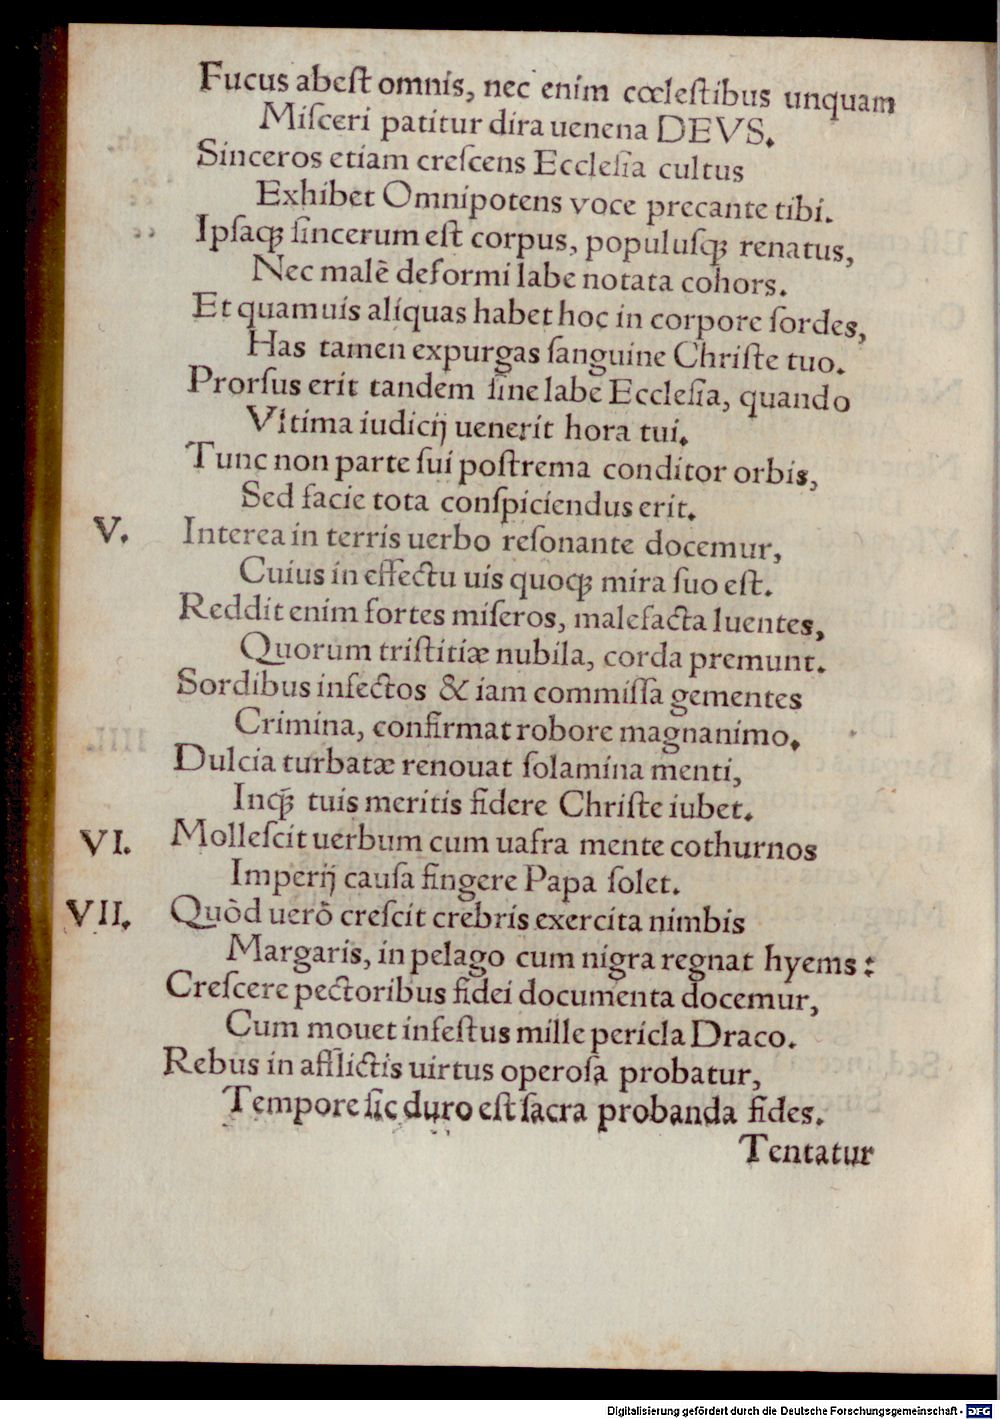 Fucus abeſt omnis, nec enim cœleſtibus unquam
Miſceri patitur dira uenena DEVS.
Sinceros etiam creſcens Eccleſia cultus
Exhibet Omnipotens voce precante tibi.
Ipſaqꝫ ſincerum eſt corpus, populuſqꝫ renatus,
Nec malè deformi labe notata cohors.
Et quamuis aliquas habet hoc in corpore ſordes,
Has tamen expurgas ſanguine Chriſte tuo.
Prorſus erit tandem ſine labe Eccleſia, quando
Vltima iudicij uenerit hora tui.
Tunc non parte ſui poſtrema conditor orbis,
Sed facie tota conſpiciendus erit.
V. Interea in terris uerbo reſonante docemur,
Cuius in effectu uis quoqꝫ mira ſuo eſt.
Reddit enim fortes miſeros, malefacta luentes,
Quorum triſtitiæ nubila, corda premunt.
Sordibus infectos & iam commiſſa gementes
Crimina, confirmat robore magnanimo.
Dulcia turbatæ renouat ſolamina menti,
Inqꝫ tuis meritis fidere Chriſte iubet.
VI. Molleſcit uerbum cum uafra mente cothurnos
Imperij cauſa fingere Papa ſolet.
VII. Quòd uerò creſcit crebris exercita nimbis
Margaris, in pelago cum nigra regnat hyems:
Creſcere pectoribus fidei documenta docemur,
Cum mouet infeſtus mille pericla Draco.
Rebus in afflictis uirtus operoſa probatur,
Tempore ſic duro eſt ſacra probanda fides.
Tentatur
Digitalisierung gefördert durch die Deutsche Forschungsgemeinschaft - DFG